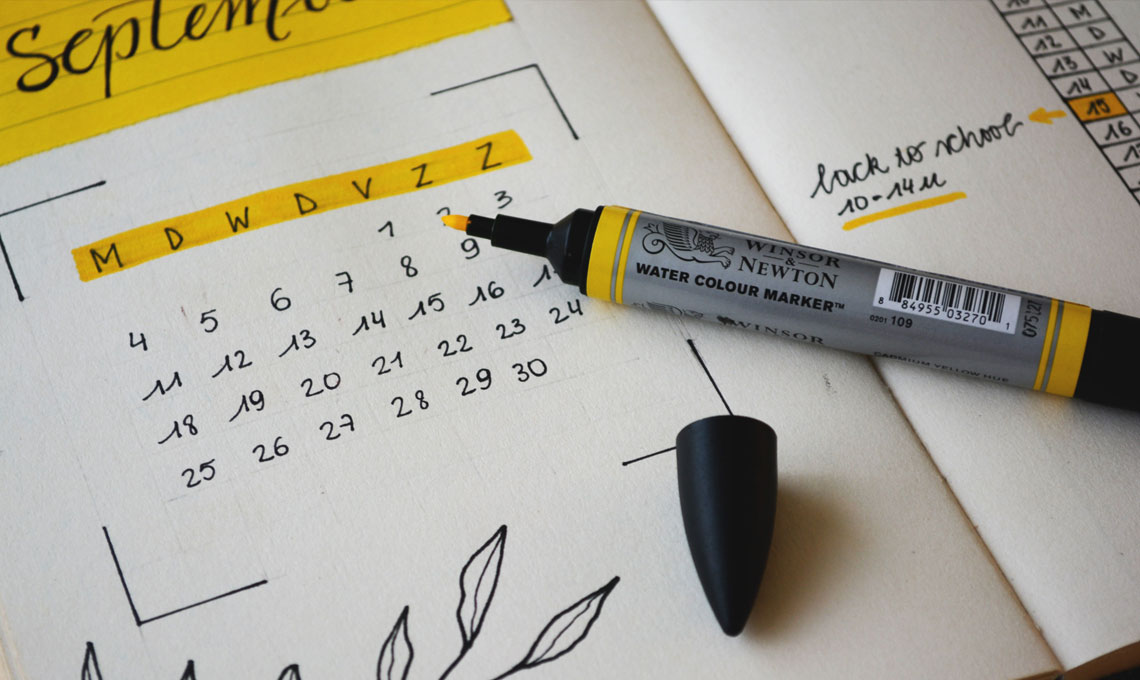 M D W D V Z Z
1 3
4 5 6 7 8 9
11 12 13 14 15 16
18 19 20 21 22 23 24
25 26 27 28 29 30
11 M
12 D
13 W
14 D
15
16
back to school
10-14u
WINSOR
&
NEWTON
WATER COLOUR MARKER™
WINSOR
8 84955 03270 1
0201 109
CADMIUM YELLOW HUE